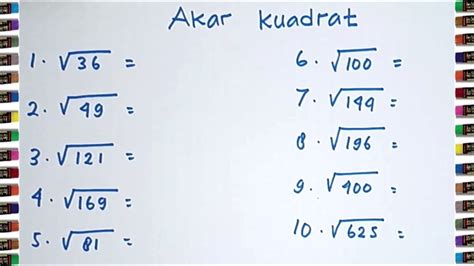 Akar kuadrat
1. √36 =
2. √49 =
3. √121 =
4. √169 =
5. √81 =
6. √100 =
7. √144 =
8. √196 =
9. √400 =
10. √625 =